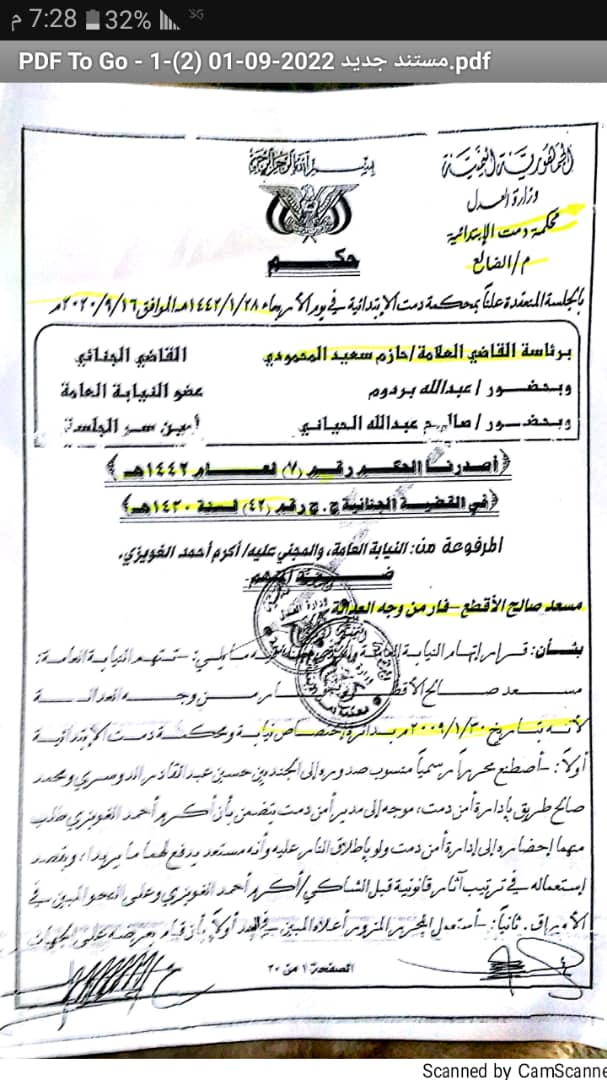 7:28 م 32% 3G
PDF To Go - 1-(2) 01-09-2022 مستند جديد.pdf
بسم الله الرحمن الرحيم
الجمهورية اليمنية
وزارة العدل
محكمة دمت الابتدائية
م/الضالع
حكم
بالجلسة المنعقدة علناً بمحكمة دمت الابتدائية في يوم الأربعاء ١٤٤٢/١/٢٨هـ الموافق ٢٠٢٠/٩/١٦م
برئاسة القاضي العلامة/حازم سعيد المحمودي القاضي الجنائي
وبحضور/عبدالله بردوم عضو النيابة العامة
وبحضور/صالح عبدالله الحياني أمين سر الجلسة
(أصدرنا الحكم رقم (٧) لعام ١٤٤٢هـ)
(في القضية الجنائية ج.ج رقم (٤٢) لسنة ١٤٢٠هـ)
المرفوعة من: النيابة العامة، والمجني عليه/أكرم أحمد الغويزي.
ضد المتهم
مسعد صالح الأقطع -فار من وجه العدالة
بشأن: قرار إتهام النيابة العامة مايلي: -تتهم النيابة العامة:
مسعد صالح الأقطع فار من وجه العدالة
لأنه بتاريخ ٢٠٠٩/١/٣٠م بدائرة إختصاص نيابة ومحكمة دمت الابتدائية
أولاً: -أصطنع محرراً رسمياً منسوب صدوره إلى الجنديين حسين عبدالقادر الدوسري ومحمد
صالح طريق بإدارة أمن دمت، موجه إلى مدير أمن دمت يتضمن بأن أكرم أحمد الغويزي طلب
منهما إحضاره إلى إدارة أمن دمت ولو بإطلاق النار عليه وأنه مستعد يدفع لهما ما يريدا، وبقصد
إستعماله في ترتيب آثار قانونية قبل الشاكي/أكرم أحمد الغويزي وعلى النحو المبين في
الأوراق. ثانياً: -أستعمل المحرر المزور أعلاه المبين في البند أولاً بأن قام بعرضه على الجهات
الصفحة ١ من ٢٠
Scanned by CamScanne